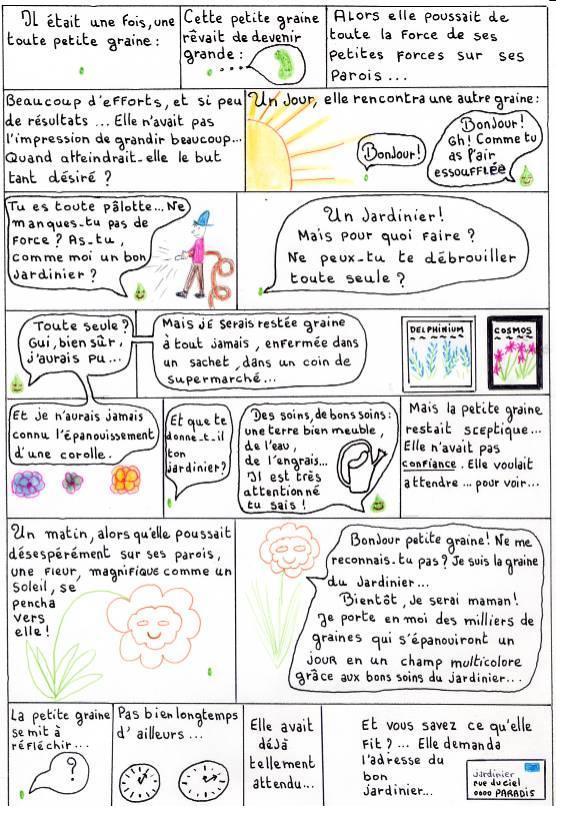 Il était une fois, une
toute petite graine :
Cette petite graine
rêvait de devenir
grande :
Alors elle poussait de
toute la force de ses
petites forces sur ses
parois...
Beaucoup d'efforts, et si peu
de résultats ... Elle n'avait pas
l'impression de grandir beaucoup...
Quand atteindrait-elle le but
tant désiré ?
Un jour, elle rencontra une autre graine :
Bonjour!
Bonjour!
Oh! Comme tu
as l'air
essoufflée
Tu es toute pâlotte... Ne
manques-tu pas de
force ? As-tu,
comme moi un bon
jardinier ?
Un jardinier !
Mais pour quoi faire ?
Ne peux-tu te débrouiller
toute seule ?
Toute seule ?
Oui, bien sûr,
j'aurais pu ...
Mais je serais restée graine
à tout jamais, enfermée dans
un sachet, dans un coin de
supermarché...
DELPHINIUM
COSMOS
Et je n'aurais jamais
connu l'épanouissement
d'une corolle.
Et que te
donne-t-il
ton
jardinier?
Des soins, de bons soins :
une terre bien meuble,
de l'eau,
de l'engrais...
Il est très
attentionné
tu sais !
Mais la petite graine
restait sceptique...
Elle n'avait pas
confiance. Elle voulait
attendre ... pour voir...
Un matin, alors qu'elle poussait
désespérément sur ses parois,
une fleur, magnifique comme un
soleil, se
pencha
vers
elle !
Bonjour petite graine! Ne me
reconnais-tu pas? Je suis la graine
du jardinier...
Bientôt, je serai maman!
Je porte en moi des milliers de
graines qui s'épanouiront un
jour en un champ multicolore
grâce aux bons soins du jardinier...
La petite graine
se mit à
réfléchir...
?
Pas bien longtemps
d'ailleurs ...
Elle avait
déjà
tellement
attendu...
Et vous savez ce qu'elle
fit ? ... Elle demanda
l'adresse du
bon
jardinier...
Jardinier
rue du ciel
0000 PARADIS